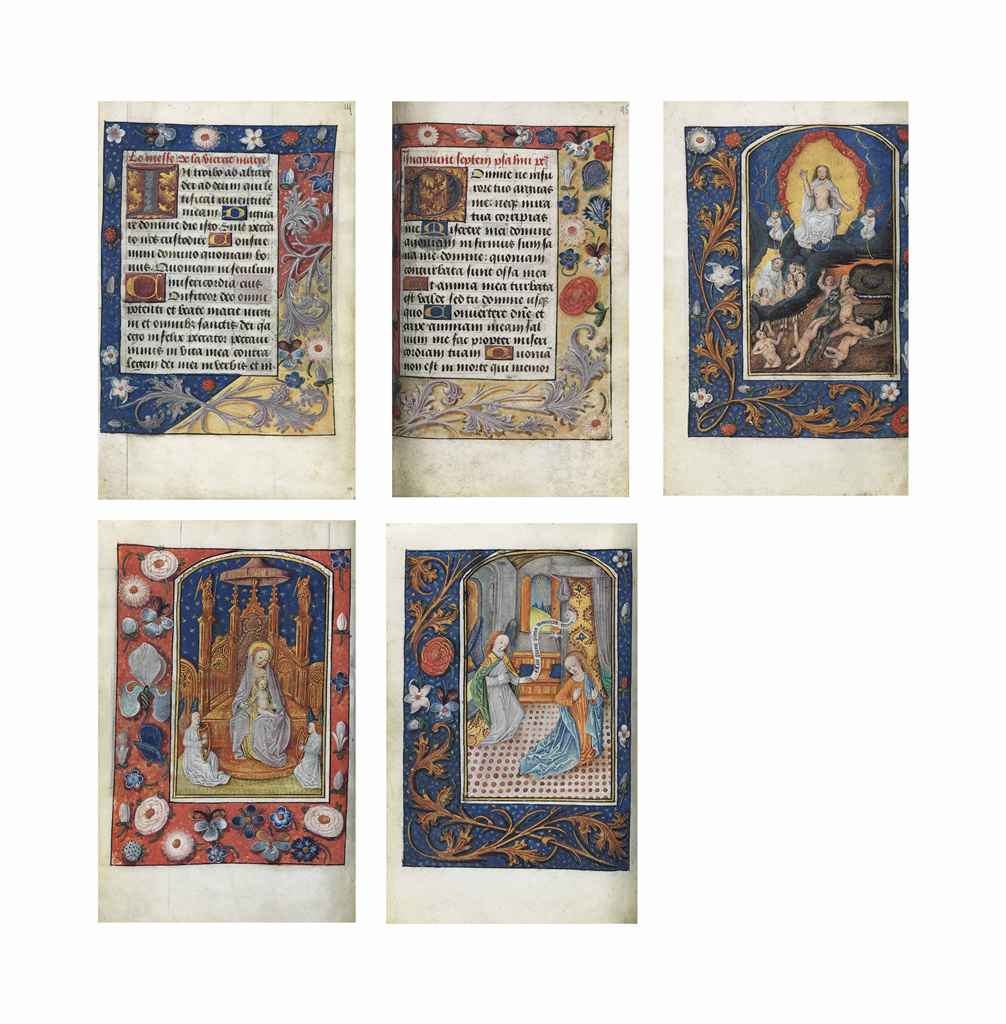 La messe de la vierge marie
Introibo ad altare
dei ad deum qui le
tificat iuventutē
meam Digna
re domine die isto. Sine pecca
to nos custodire Confir
mini domino quoniam bo
nus. Quoniam in seculum
misericordia eius
Confiteor deo omni
potenti et beate marie virgi
ni et omnibꝰ sanctis dei qꝛ
ego infelix peccator peccaui
nimis in vita mea contra
legem dei mei in verbis et in
95
Incipiunt septem psalmi pe
Domine ne in fu
rore tuo arguas
me: neqꝫ in ira
tua corripias
me Miserere mei domine
quoniam infirmus sum sa
na me domine: quoniam
conturbata sunt ossa mea
Et anima mea turbata
est valde sed tu domine usqꝫ
quo Convertere dñe et
eripe animam meam sal
uum me fac propter miseri
cordiam tuam Quoniā
non est in morte qui memor